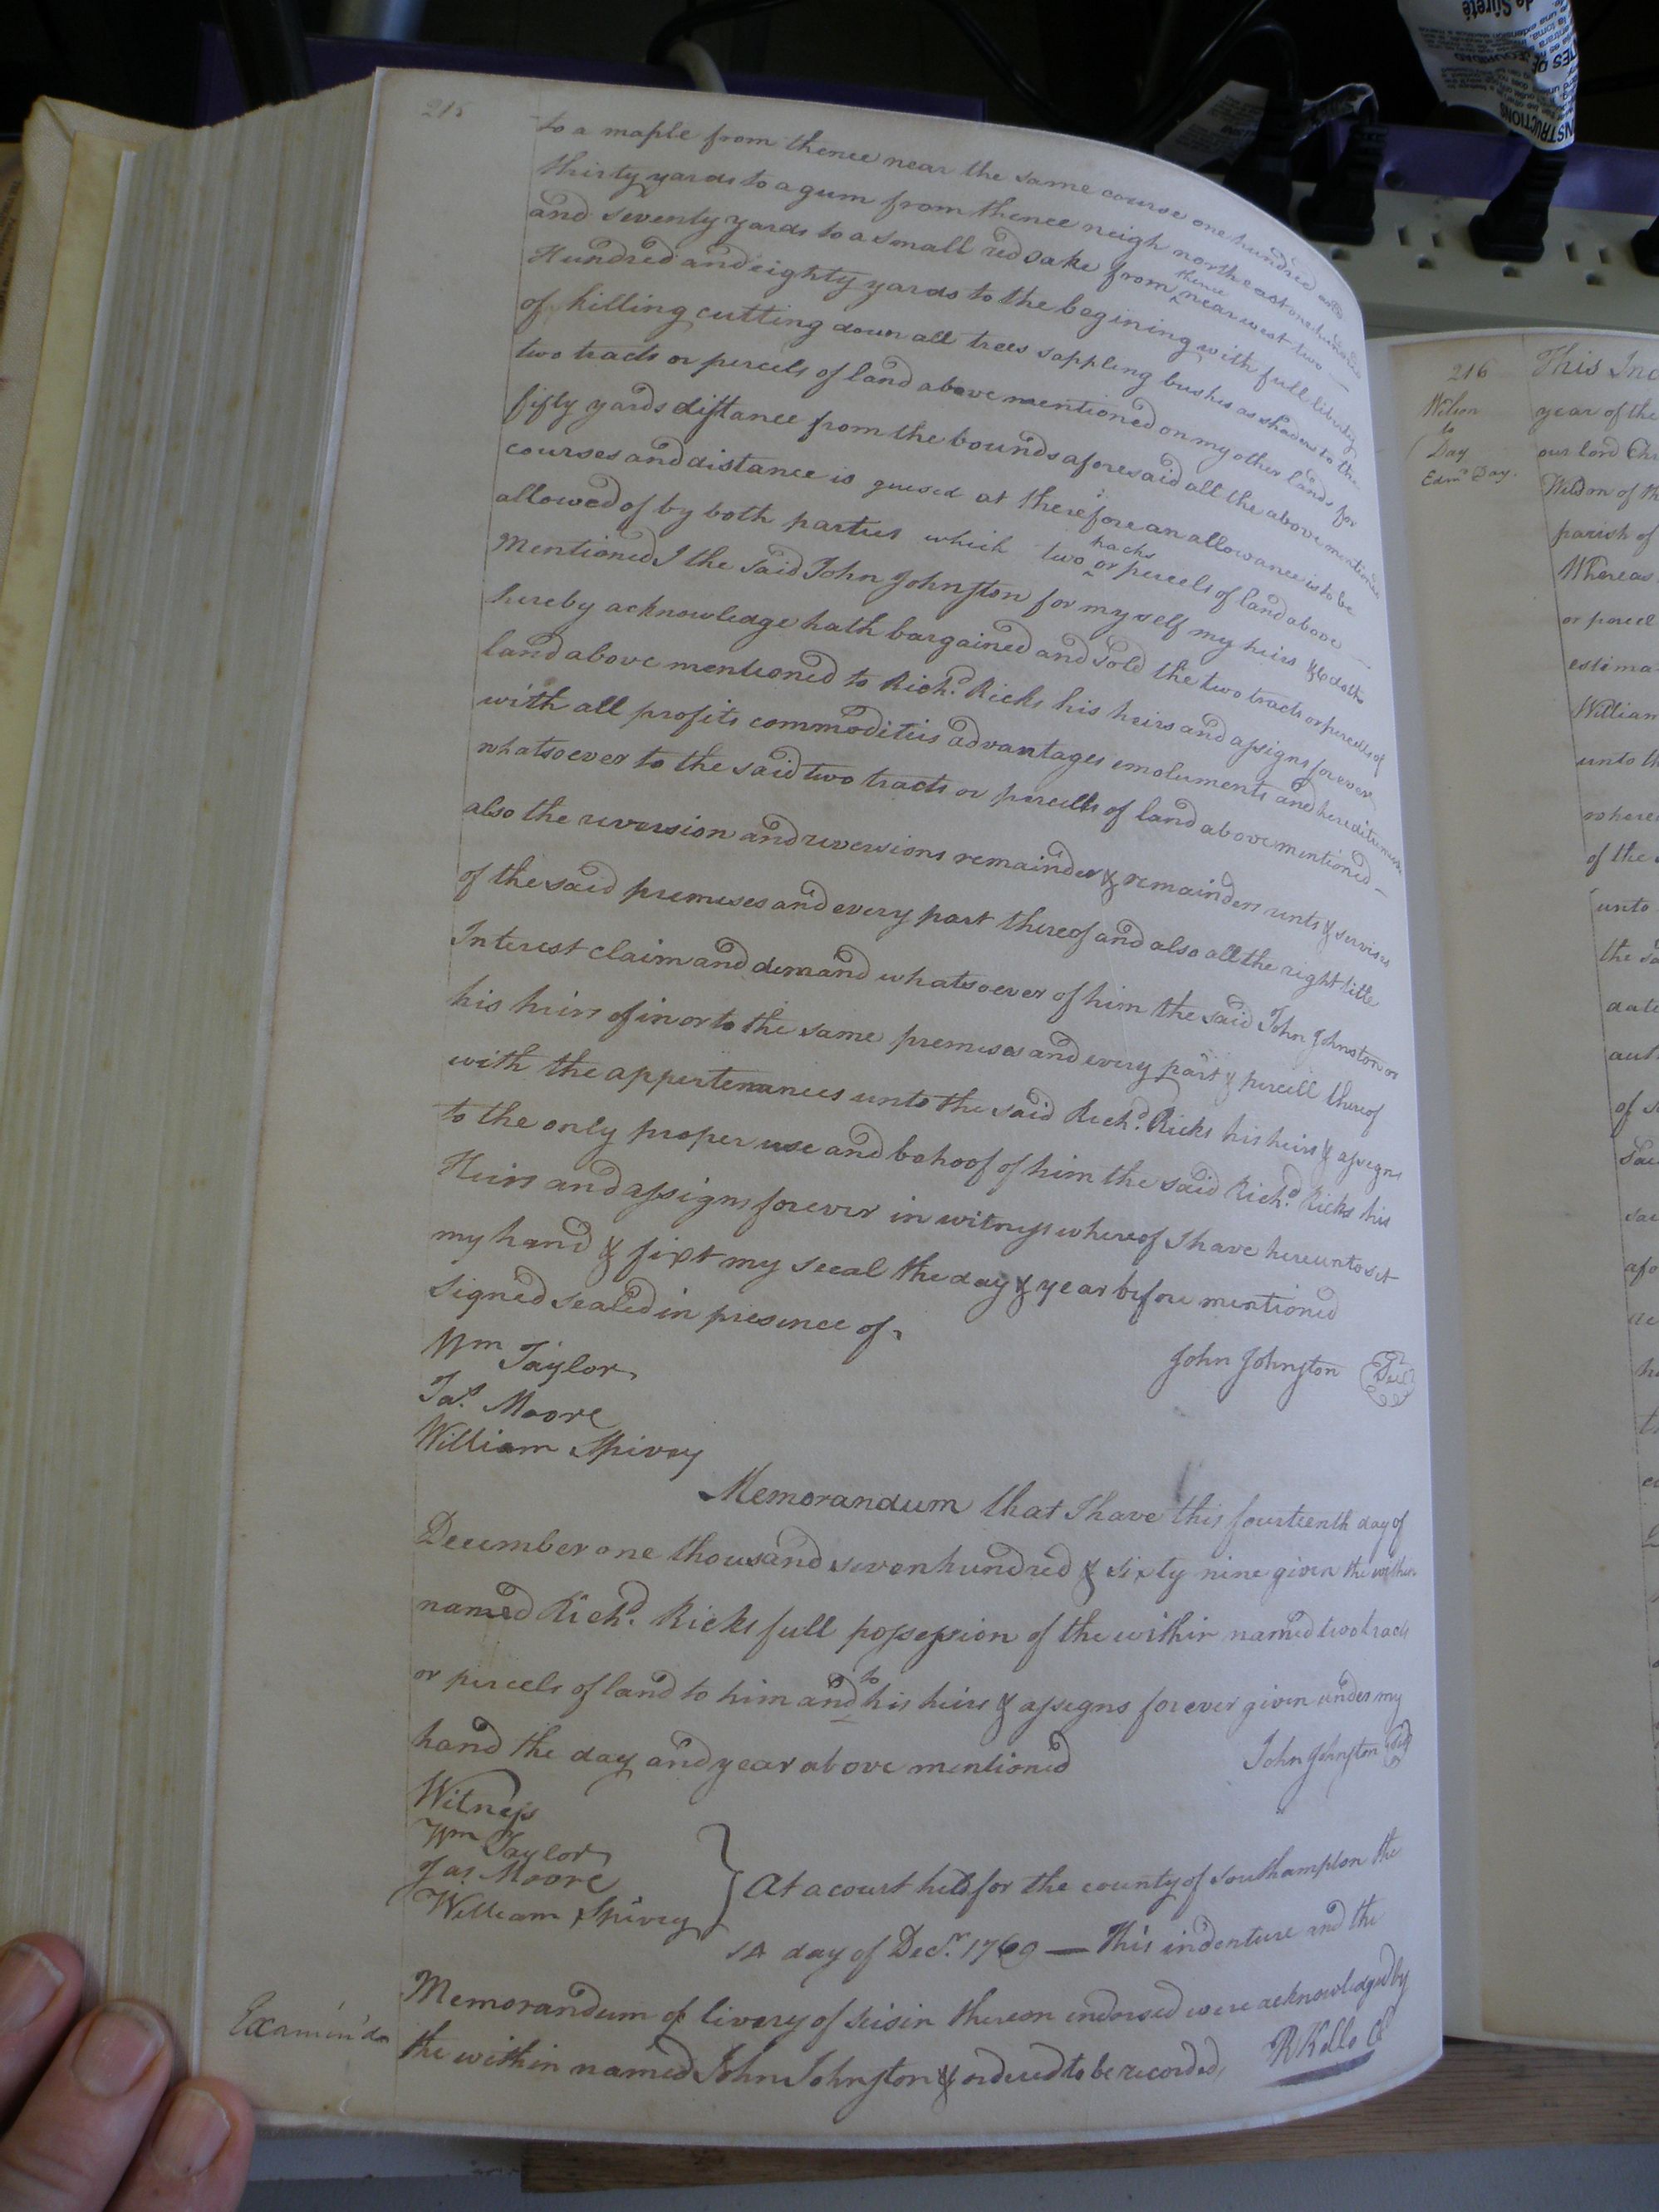 215
to a maple from thence near the same course one hundred and
thirty yards to a gum from thence neigh north east one hundred
and seventy yards to a small red oake from thence near west two
Hundred and eighty yards to the begining with full liberty
of killing cutting down all trees sappling bushes as shades to the
two tracts or percels of land above mentioned on my other lands for
fifty yards distance from the bounds aforesaid all the above mentioned
courses and distance is guesed at therefore an allowance is to be
allowed of by both parties which two tracts or percels of land above
Mentioned I the said John Johnston for myself my heirs &c doth
hereby acknowledge hath bargained and sold the two tracts or percells of
land above mentioned to Richd. Ricks his heirs and assigns forever
with all profits commoditiis advantages emoluments and hereditements
whatsoever to the said two tracts or percells of land above mentioned
also the reversion and reversions remainder & remainders rents & servises
of the said premises and every part thereof and also all the right title
Interest claim and demand whatsoever of him the said John Johnston or
his heirs of in or to the same premises and every part & percell thereof
with the appertenances unto the said Richd. Ricks his heirs & assigns
to the only proper use and behoof of him the said Richd. Ricks his
Heirs and assigns forever in witness whereof I have hereunto set
my hand & fixt my seeal the day & year before mentioned
Signed sealed in presence of
Wm Taylor
John Johnston Seal
Jas. Moore
William Spivey
Memorandum that I have this fourteenth day of
December one thousand seven hundred & sixty nine given the within
named Richd. Ricks full possession of the within named two tracts
or percels of land to him and to his heirs & assegns forever given under my
hand the day and year above mentioned
John Johnston Seal
Witness
Wm Taylor
Jas Moore
William Spivey
At a court held for the county of Southampton the
14 day of Decr. 1769 — This indenture and the
Memorandum of livery of seisin thereon endorsed were acknowledged by
the within named John Johnston & ordered to be recorded,
R Kello Cl
Examin'd
216
Wilson
to
Day
Edmd Day.
This Ind
year of the
our lord Chr
of th
parish of
Whereas
or parcel
estima
William
unto th
where
of the
unto
the sa
date
aut
of s
Sai
sai
afo
INSTRUCTIONS
de Sûreté